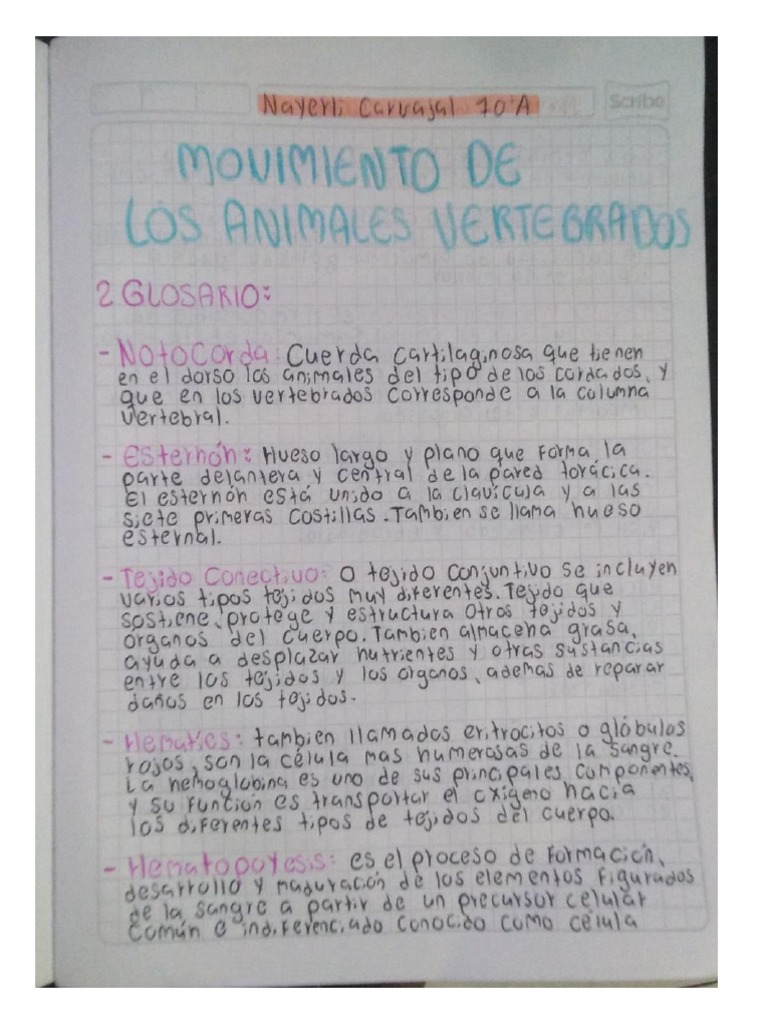 Nayerli Carvajal 10°A
Scribe
MOVIMIENTO DE
LOS ANIMALES VERTEBRADOS
2 GLOSARIO:
- Notocorda: Cuerda cartilaginosa que tienen
en el dorso los animales del tipo de los cordados, y
que en los vertebrados corresponde a la columna
vertebral.
- Esternón: Hueso largo y plano que forma la
parte delantera y central de la pared torácica.
El esternón está unido a la clavícula y a las
siete primeras costillas. Tambien se llama hueso
esternal.
- Tejido Conectivo: O tejido conjuntivo se incluyen
varios tipos tejidos muy diferentes. Tejido que
sostiene, protege y estructura otros tejidos y
órganos del cuerpo. Tambien almacena grasa,
ayuda a desplazar nutrientes y otras sustancias
entre los tejidos y los órganos, ademas de reparar
daños en los tejidos.
- Hematíes: tambien llamados eritrocitos o glóbulos
rojos, son la célula mas numerosas de la sangre.
La hemoglobina es uno de sus principales componentes,
y su función es transportar el oxígeno hacia
los diferentes tipos de tejidos del cuerpo.
- Hematopoyesis: es el proceso de formación,
desarrollo y maduración de los elementos figurados
de la sangre a partir de un precursor celular
común e indiferenciado conocido como célula